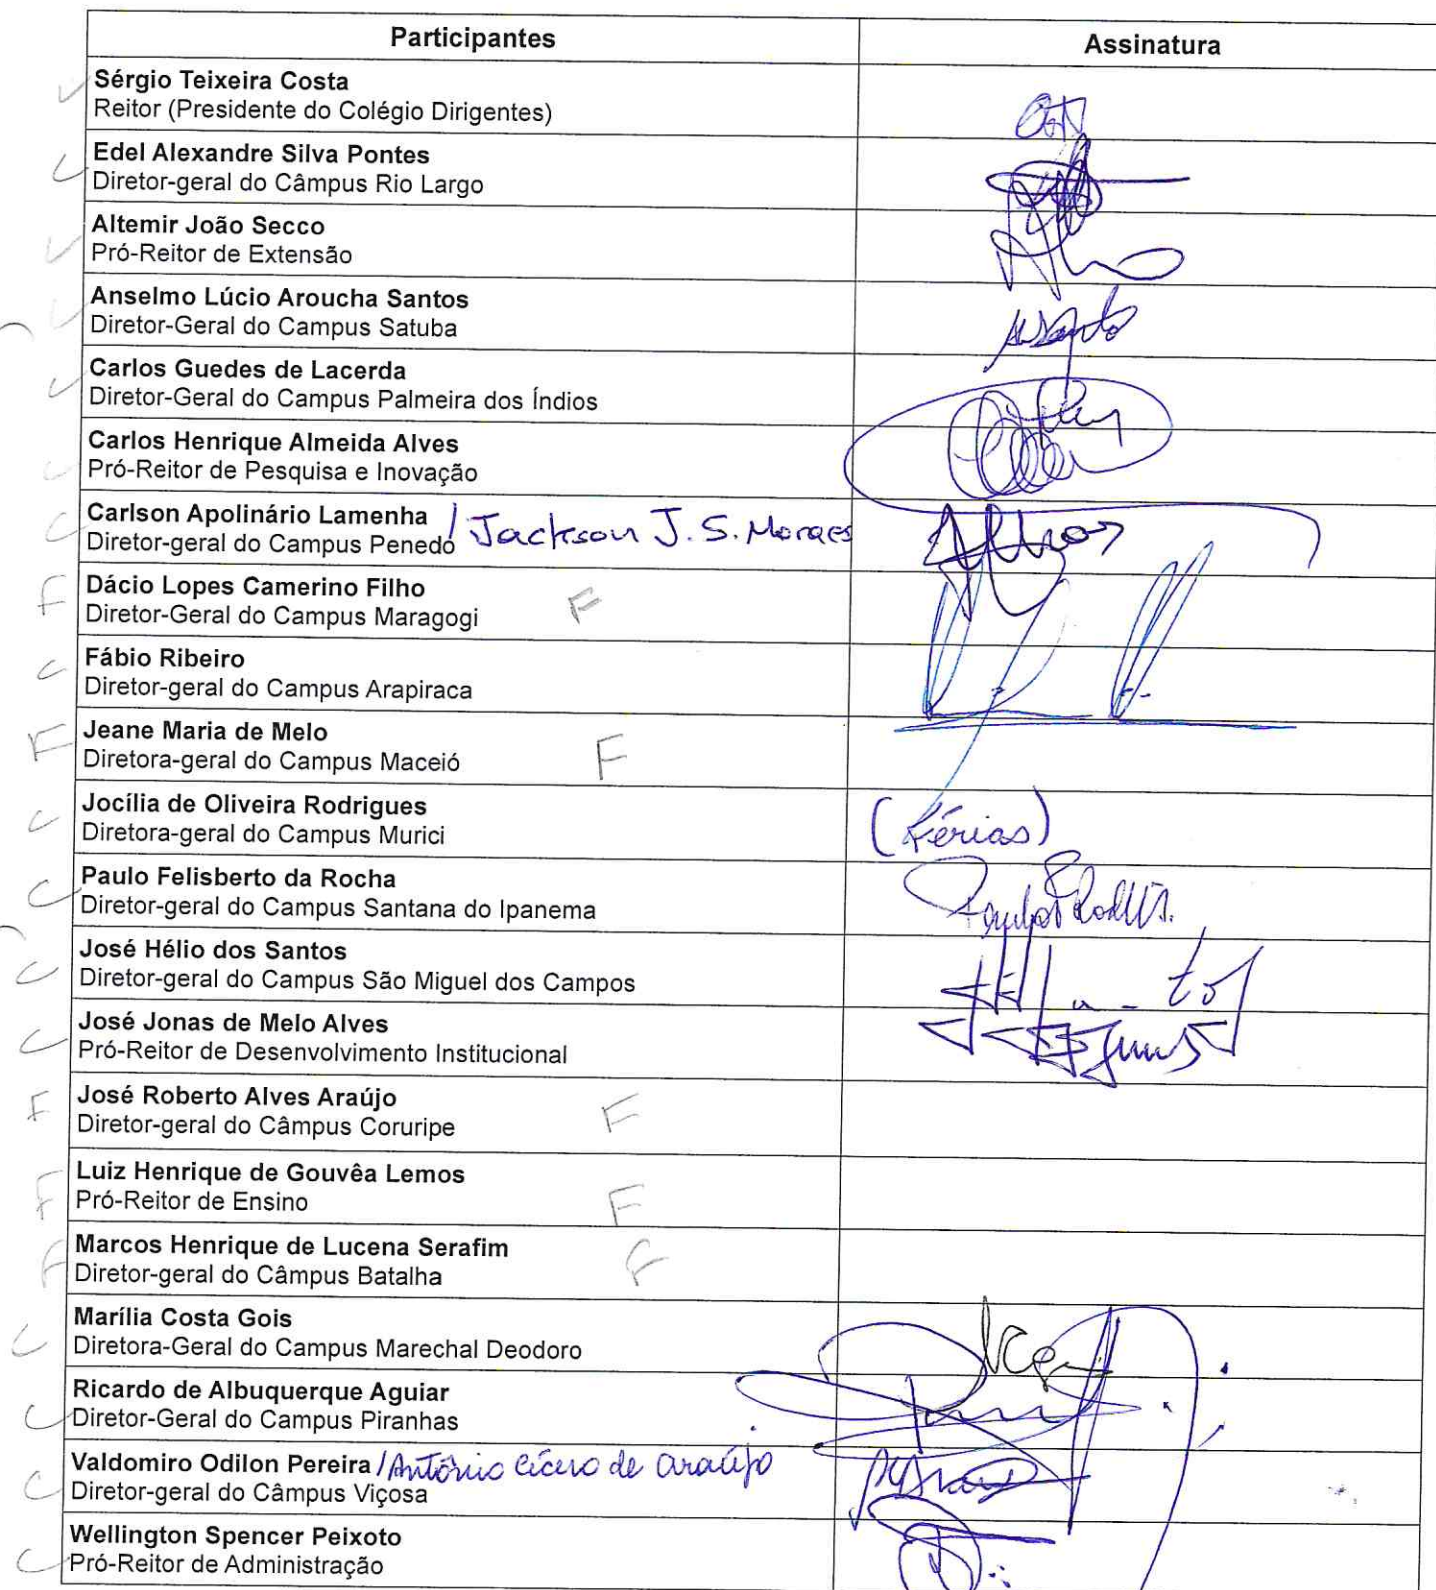 Participantes
Assinatura
Sérgio Teixeira Costa
Reitor (Presidente do Colégio Dirigentes)
Edel Alexandre Silva Pontes
Diretor-geral do Câmpus Rio Largo
Altemir João Secco
Pró-Reitor de Extensão
Anselmo Lúcio Aroucha Santos
Diretor-Geral do Campus Satuba
Carlos Guedes de Lacerda
Diretor-Geral do Campus Palmeira dos Índios
Carlos Henrique Almeida Alves
Pró-Reitor de Pesquisa e Inovação
Carlson Apolinário Lamenha / Jackson J. S. Moraes
Diretor-geral do Campus Penedo
F Dácio Lopes Camerino Filho
Diretor-Geral do Campus Maragogi F
Fábio Ribeiro
Diretor-geral do Campus Arapiraca
F Jeane Maria de Melo
Diretora-geral do Campus Maceió F
Jocília de Oliveira Rodrigues
Diretora-geral do Campus Murici
(Férias)
Paulo Felisberto da Rocha
Diretor-geral do Campus Santana do Ipanema
José Hélio dos Santos
Diretor-geral do Campus São Miguel dos Campos
José Jonas de Melo Alves
Pró-Reitor de Desenvolvimento Institucional
F José Roberto Alves Araújo
Diretor-geral do Câmpus Coruripe F
F Luiz Henrique de Gouvêa Lemos
Pró-Reitor de Ensino F
F Marcos Henrique de Lucena Serafim F
Diretor-geral do Câmpus Batalha
Marília Costa Gois
Diretora-Geral do Campus Marechal Deodoro
Ricardo de Albuquerque Aguiar
Diretor-Geral do Campus Piranhas
Valdomiro Odilon Pereira / Antônio Cícero de Araújo
Diretor-geral do Câmpus Viçosa
Wellington Spencer Peixoto
Pró-Reitor de Administração